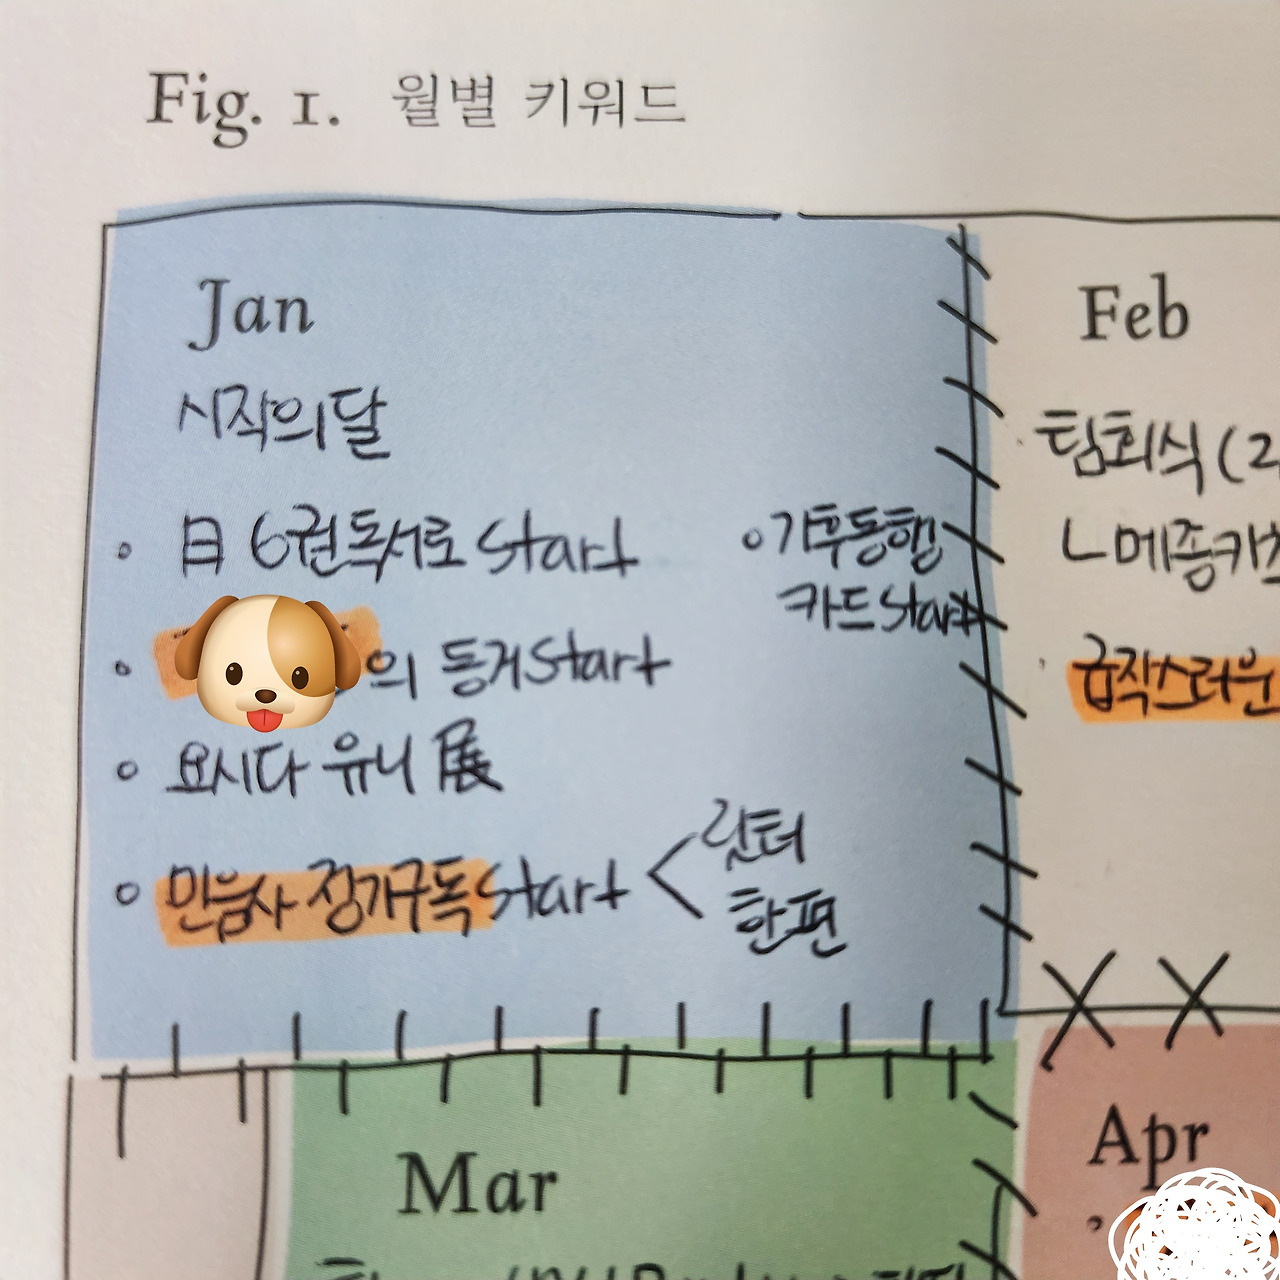 Fig. 1. 월별 키워드
Jan
시작의 달
日 6권 독서로 Start
의 동거 Start
요시다 유니 展
민음사 정기구독 Start < 릿터
한편
기후동행
카드 Start
Feb
팀회식 (2
ㄴ메종키츠
급작스러운
Mar
Apr